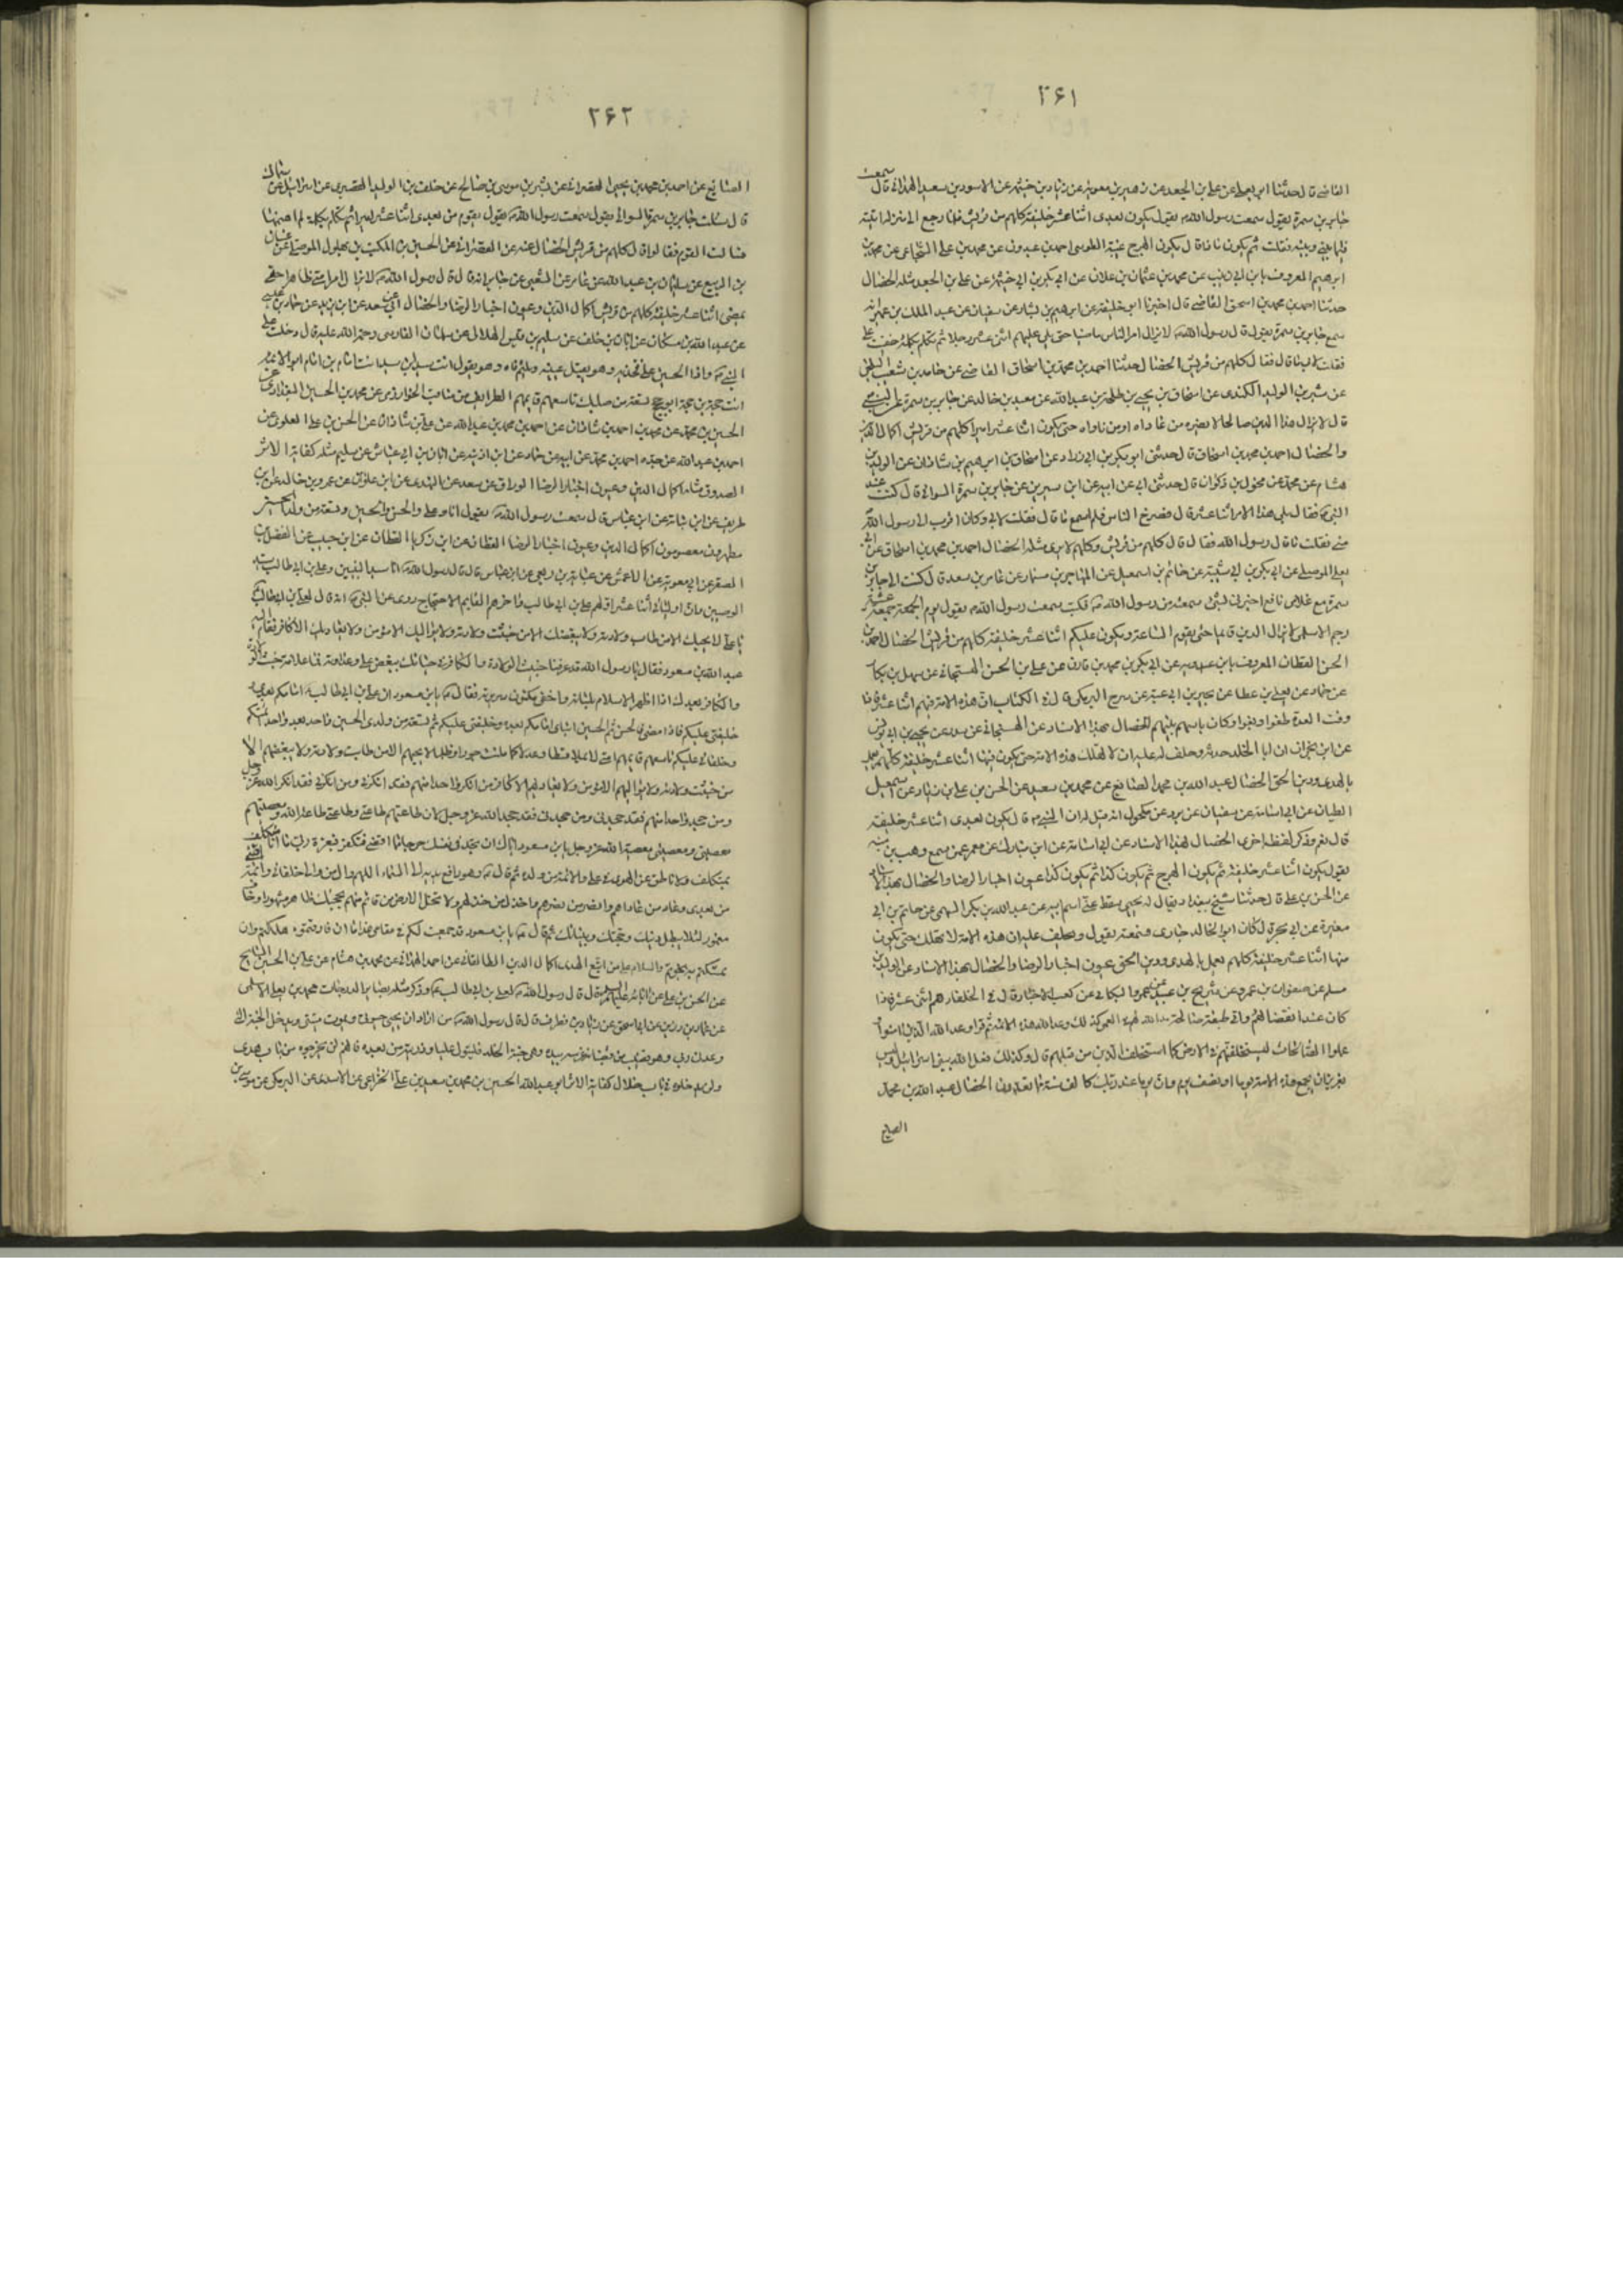 ٣۶١
القاضى قال حدثنا ابو يعلى عن على بن الجعد عن زهير بن معوية عن زياد بن خيثمه عن الاسود بن سعيد الهمدانى قال سمعت
جابر بن سمرة يقول سمعت رسول الله يقول يكون بعدى اثنا عشر خليفة كلهم من قريش فلما رجع الى منزله اتيته
فيما بينى وبينه فقلت ثم يكون ماذا قال يكون الهرج غيبة الطوسى احمد بن عبدون عن محمد بن على الشجاعى عن محمد بن
ابرهيم المعروف بابن ابى زينب عن محمد بن عثمان بن علان عن ابى بكر بن ابى خيثمه عن على بن الجعد مثله الخصال
حدثنا احمد بن محمد بن اسحق القاضى قال اخبرنا ابو خليفة عن ابرهيم بن بشار عن سفيان عن عبد الملك بن عمير انه
سمع جابر بن سمرة يقول قال رسول الله لا يزال امر الناس ماضيا حتى يلى عليهم اثنى عشر رجلا ثم تكلم بكلمة خفيت على
فقلت لابى ما قال فقال قال كلهم من قريش الخصال حدثنا احمد بن محمد بن اسحاق القاضى عن حامد بن شعيب البلخى
عن بشر بن الوليد الكندى عن اسحاق بن يحيى بن طلحة بن عبد الله عن معبد بن خالد عن جابر بن سمرة عن النبى
قال لا يزال هذا الدين صالحا لا يضره من عاداه او من ناواه حتى يكون اثنا عشر اميرا كلهم من قريش اكمال الدين
والخصال احمد بن محمد بن اسحاق قال حدثنى ابو بكر بن ابى زواد عن اسحاق بن ابرهيم بن شاذان عن الوليد بن
هشام عن محمد عن مخول بن ذكوان قال حدثنى ابى عن ابيه عن ابن سيرين عن جابر بن سمرة السوائى قال كنت عند
النبى فقال يلى هذا الامر اثنا عشر قال فصرخ الناس فلم اسمع ما قال فقلت لابى وكان اقرب الى رسول الله
منى فقلت ما قال رسول الله فقال قال كلهم من قريش وكلهم لا يرى مثله الخصال احمد بن محمد بن اسحاق عن ابى
يعلى الموصلى عن ابى بكر بن ابى شيبة عن حاتم بن اسمعيل عن المهاجر بن مسمار عن عامر بن سعد قال كتبت الى جابر بن
سمرة مع غلامى نافع اخبرنى بشىء سمعته من رسول الله فكتب سمعت رسول الله يقول يوم الجمعة عشية
رجم الاسلمى لا يزال الدين قائما حتى تقوم الساعة ويكون عليكم اثنا عشر خليفة كلهم من قريش الخصال احمد بن
الحسن القطان المعروف بابن عبدويه عن ابى بكر بن محمد بن قارن عن على بن الحسن الهسنجانى عن سهل بن بكار
عن حماد عن يعلى بن عطا عن بحير بن ابى عبيد عن سرج البرمكى قال فى الكتاب ان هذه الامة فيهم اثنا عشر فاذا
وفت العدة طغوا وبغوا وكان باسهم بينهم الخصال بهذا الاسناد عن الهسنجانى عن سدد عن يحيى بن ابى يونس
عن ابن نجران ان ابا الخلد حدثه وحلف له عليه ان لا تهلك هذه الامة حتى يكون فيها اثنا عشر خليفة كلهم يعمل
بالهدى ودين الحق الخصال عبد الله بن محمد الصائغ عن محمد بن سعيد عن الحسن بن على بن زياد عن اسمعيل
الطيان عن ابى اسامة عن سفيان عن برد عن مكحول انه قيل له ان النبى قال يكون بعدى اثنا عشر خليفة
قال نعم وذكر لفظة اخرى الخصال بهذا الاسناد عن ابى اسامة عن ابن مبارك عن معمر عمن سمع وهب بن منبه
يقول يكون اثنا عشر خليفة ثم يكون الهرج ثم يكون كذا ثم يكون كذا عيون اخبار الرضا والخصال بهذا الاسناد
عن الحسن بن على قال حدثنا شيخ ببغداد يقال له يحيى سقط عنى اسم ابيه عن عبد الله بن بكر السهمى عن حاتم بن ابى
مغيرة عن ابى بحرة قال كان ابو الخالد جارى فسمعته يقول ويحلف عليه ان هذه الامة لا تهلك حتى يكون
منها اثنا عشر خليفة كلهم يعمل بالهدى ودين الحق عيون اخبار الرضا والخصال بهذا الاسناد عن الوليد بن
مسلم عن صفوان بن عمرو عن شريح بن عبيد عن عمرو البكائى عن كعب الاحبار قال فى الخلفاء هم اثنى عشر فاذا
كان عند انقضائهم واتى طبقة صالحة مد الله لهم فى العمر كذلك وعد الله هذه الامة ثم قرا وعد الله الذين امنوا
وعملوا الصالحات ليستخلفنهم فى الارض كما استخلف الذين من قبلهم قال وكذلك فعل الله ببنى اسرائيل وليس
بعزيز ان يجمع هذه الامة يوما او نصف يوم وان يوما عند ربك كالف سنة مما تعدون الخصال عبد الله بن محمد
الصايغ
٣۶٢
الصائغ عن احمد بن محمد بن يحيى القصرانى عن بشر بن موسى بن صالح عن خلف بن الوليد القصرى عن اسرائيل عن سماك
قال سمعت جابر بن سمرة السوائى يقول سمعت رسول الله يقول يقوم من بعدى اثنا عشر اميرا ثم تكلم بكلمة لم افهمها
فسالت القوم فقالوا قال كلهم من قريش الخصال عنه عن القصرانى عن الحسين بن الكميت بن بهلول الموصلى عن غسان
بن الربيع عن سليمان بن عبد الله عن عامر عن الشعبى عن جابر انه قال قال رسول الله لا يزال امر امتى ظاهرا حتى
يمضى اثنا عشر خليفة كلهم من قريش اكمال الدين وعيون اخبار الرضا والخصال ابى عن سعد عن ابن يزيد عن حماد بن عيسى
عن عبد الله بن مسكان عن ابان بن خلف عن سليم بن قيس الهلالى عن سلمان الفارسى رحمة الله عليه قال دخلت على
النبى واذا الحسين على فخذيه وهو يقبل عينيه ويلثم فاه وهو يقول انت سيد بن سيد انت امام بن امام ابو الائمة
انت حجة بن حجة ابو حجج تسعة من صلبك تاسعهم قايمهم الطرايف من مناقب الخوارزمى عن محمد بن الحسين البغدادى عن
الحسين بن محمد عن محمد بن احمد بن شاذان عن احمد بن محمد بن عبد الله عن على بن شاذان عن الحسن بن على العلوى عن
احمد بن عبد الله عن جده احمد بن محمد عن ابيه عن حماد عن ابن اذينه عن ابان بن ابى عياش عن سليم مثله كفاية الاثر
الصدوق مثله اكمال الدين وعيون اخبار الرضا الوراق عن سعد عن النهدى عن ابن علوان عن عمرو بن خالد عن ابن
طريف عن ابن نباتة عن ابن عباس قال سمعت رسول الله يقول انا وعلى والحسن والحسين وتسعة من ولد الحسين
مطهرون معصومون اكمال الدين وعيون اخبار الرضا القطان عن ابن زكريا القطان عن ابن حبيب عن الفضل بن
الصقر عن ابى معوية عن الاعمش عن عباية بن ربعى عن ابن عباس قال قال رسول الله انا سيد النبيين وعلى بن ابى طالب سيد
الوصيين وان اوصيائى اثنا عشر اولهم على بن ابى طالب واخرهم القايم الاحتجاج روى عن النبى انه قال لعلى بن ابى طالب
يا على لا يحبك الا من طابت ولادته ولا يبغضك الا من خبثت ولادته ولا يواليك الا مؤمن ولا يعاديك الا كافر فقام اليه
عبد الله بن مسعود فقال يا رسول الله قد عرفنا خبيث الولادة والكافر فى حياتك ببغض على وعداوته فما علامة خبيث الولادة
والكافر بعدك اذا اظهر الاسلام بلسانه واخفى مكنون سريرته فقال يا بن مسعود ان على بن ابى طالب امامكم بعدى
وخليفتى عليكم فاذا مضى فالحسن ثم الحسين ابناى امامكم بعده وخليفتى عليكم ثم تسعة من ولدى الحسين واحد بعد واحد ائمتكم
وخلفائى عليكم تاسعهم قايمهم امتى يملاها قسطا وعدلا كما ملئت جورا وظلما لا يحبهم الا من طابت ولادته ولا يبغضهم الا
من خبثت ولادته ولا يواليهم الا مؤمن ولا يعاديهم الا كافر من انكر واحدا منهم فقد انكرنى ومن انكرنى فقد انكر الله عز وجل
ومن جحد واحدا منهم فقد جحدنى ومن جحدنى فقد جحد الله عز وجل لان طاعتهم طاعتى وطاعتى طاعة الله ومعصيتهم
معصيتى ومعصيتى معصية الله عز وجل يا بن مسعود اياك ان تجد فى نفسك حرجا مما اقضى فتكفر فبعزة ربى ما انا متكلف
بمتكلف ولا ناطق عن الهوى فى على والائمة من ولده ثم قال وهو رافع يديه الى السماء اللهم وال من والى خلفائى وائمة امتى
من بعدى وعاد من عاداهم وانصر من نصرهم واخذل من خذلهم ولا تخل الارض من قائم منهم بحجتك ظاهر مشهورا او خاف
مغمور لئلا يبطل دينك وحجتك وبيناتك ثم قال يا بن مسعود قد جمعت لكم فى مقامى هذا ما ان فارقتموه هلكتم وان
تمسكتم به نجوتم والسلام على من اتبع الهدى اكمال الدين الطالقانى عن احمد الهمدانى عن محمد بن هشام عن على بن الحسين السايح
عن الحسن بن على عن ابائه عليهم السلام قال قال رسول الله لعلى بن ابى طالب وذكر مثله بصائر الدرجات محمد بن يعلى الاسلمى
عن عمار بن رزين عن ابى اسحق عن زياد بن مطرف قال قال رسول الله من اراد ان يحيى حيوتى ويموت ميتتى ويدخل الجنة التى
وعدنى ربى وهو قضيب من قضبانه غرسه بيده وهى جنة الخلد فليتول عليا وذريته من بعده فانهم لن يخرجوه من باب هدى
ولن يدخلوه فى باب ضلال كفاية الاثر ابو عبد الله الحسين بن محمد بن سعيد بن على الخزاعى عن الاسدى عن البرمكى عن موسى بن